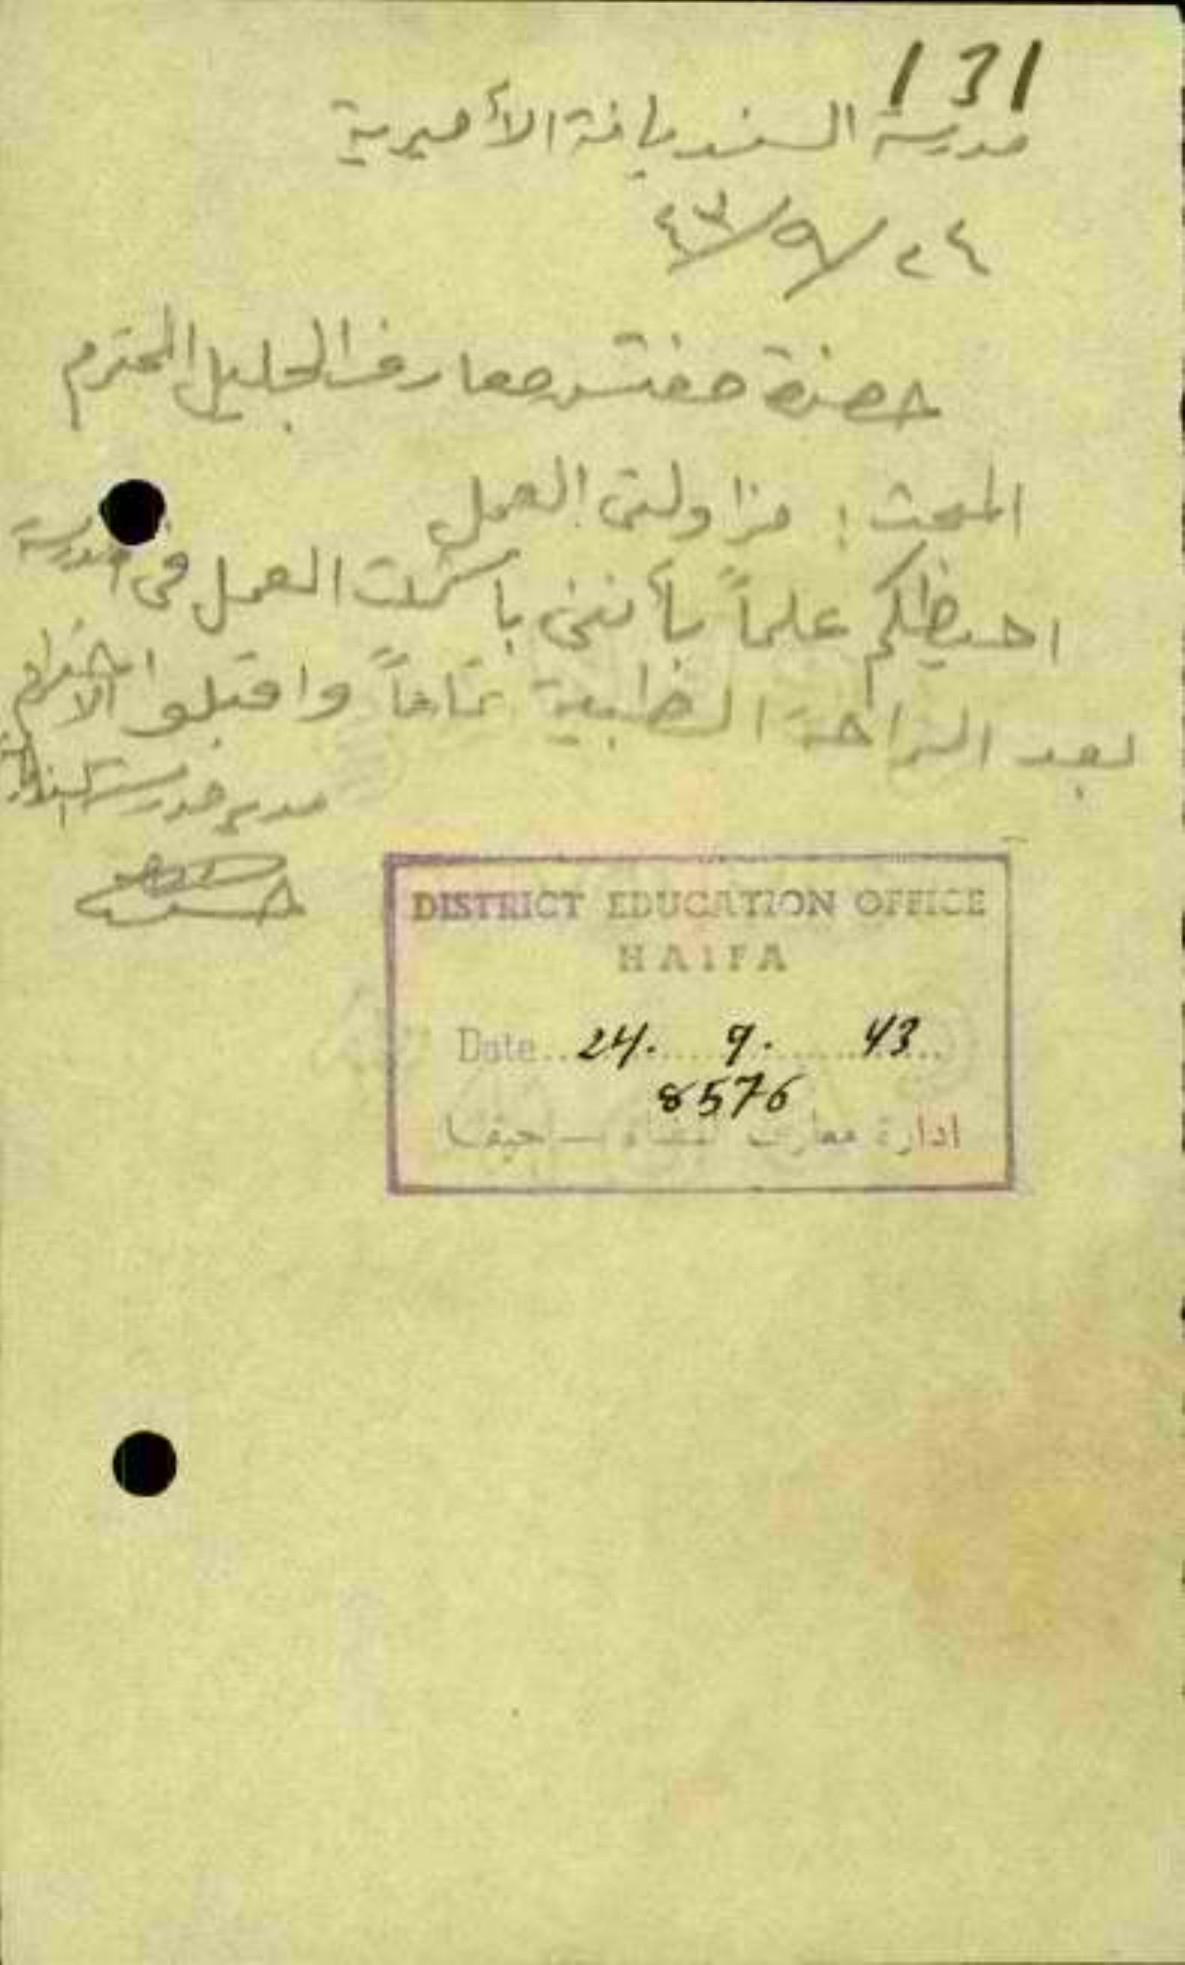 131
مدرسة السنديانة الأميرية
٢٤/٩/٤٣
حضرة مفتش معارف الجليل المحترم
المبحث : مزاولتي العمل
احيطكم علماً بأنني باشرت العمل في مدرسة
بعد الراحة الطبية تماماً واقبلوا الاحترام
مدير مدرسة السنديانة
DISTRICT EDUCATION OFFICE
HAIFA
Date 24. 9. 43
8576
ادارة معارف لواء حيفا